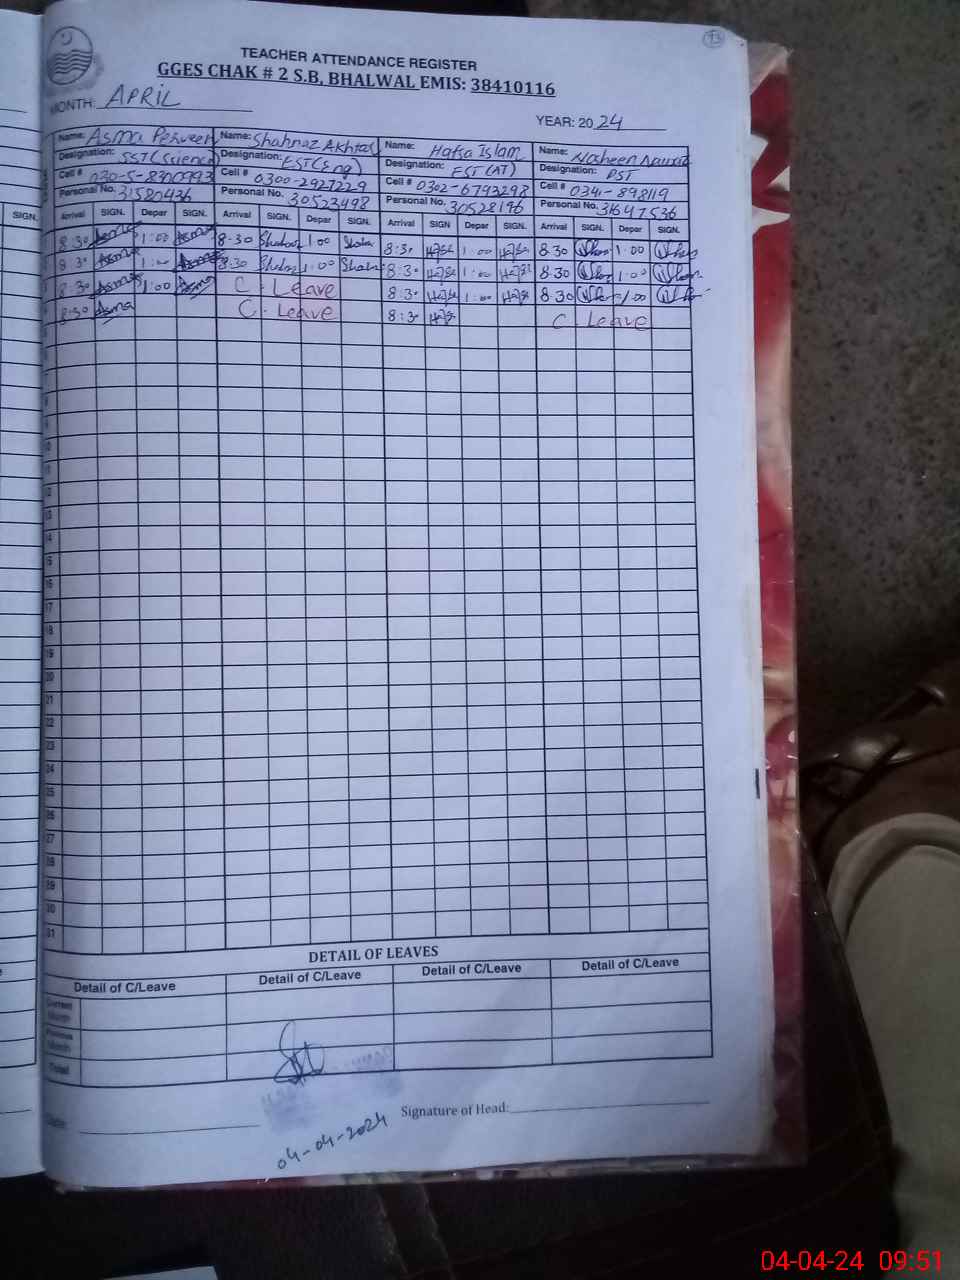 93
TEACHER ATTENDANCE REGISTER
GGES CHAK # 2 S.B, BHALWAL EMIS: 38410116
MONTH: APRIL
YEAR: 2024
Name: Asma Perveen Name: Shahnaz Akhtar Name: Hafsa Islam Name: Nosheen
Designation: SST(Science) Designation: EST(Eng) Designation: EST(AT) Designation: PST
Cell # 030-5-8300993 Cell # 0300-2927229 Cell # 0302-6793298 Cell # 0341-898119
Personal No. 31580436 Personal No. 30523498 Personal No. 30528196 Personal No. 31647536
SIGN. Arrival SIGN. Depar SIGN. Arrival SIGN. Depar SIGN. Arrival SIGN Depar SIGN. Arrival SIGN. Depar SIGN.
8:30 Asma 1:00 Asma 8-30 1:00 8:30 1:00 8:30 1:00
8:30 Asma 1:00 Asma 8:30 1:00 8:30 1:00 8:30 1:00
8:30 Asma 1:00 Asma C. Leave 8:30 1:00 8:30 1:00
8:30 Asma C. Leave 8:30 C. Leave
7
8
9
10
11
12
13
14
15
16
17
18
19
20
21
22
23
24
25
26
27
28
29
30
31
DETAIL OF LEAVES
Detail of C/Leave Detail of C/Leave Detail of C/Leave Detail of C/Leave
Current Month
Previous Month
Total
Date: Signature of Head:
04-04-2024
04-04-24 09:51